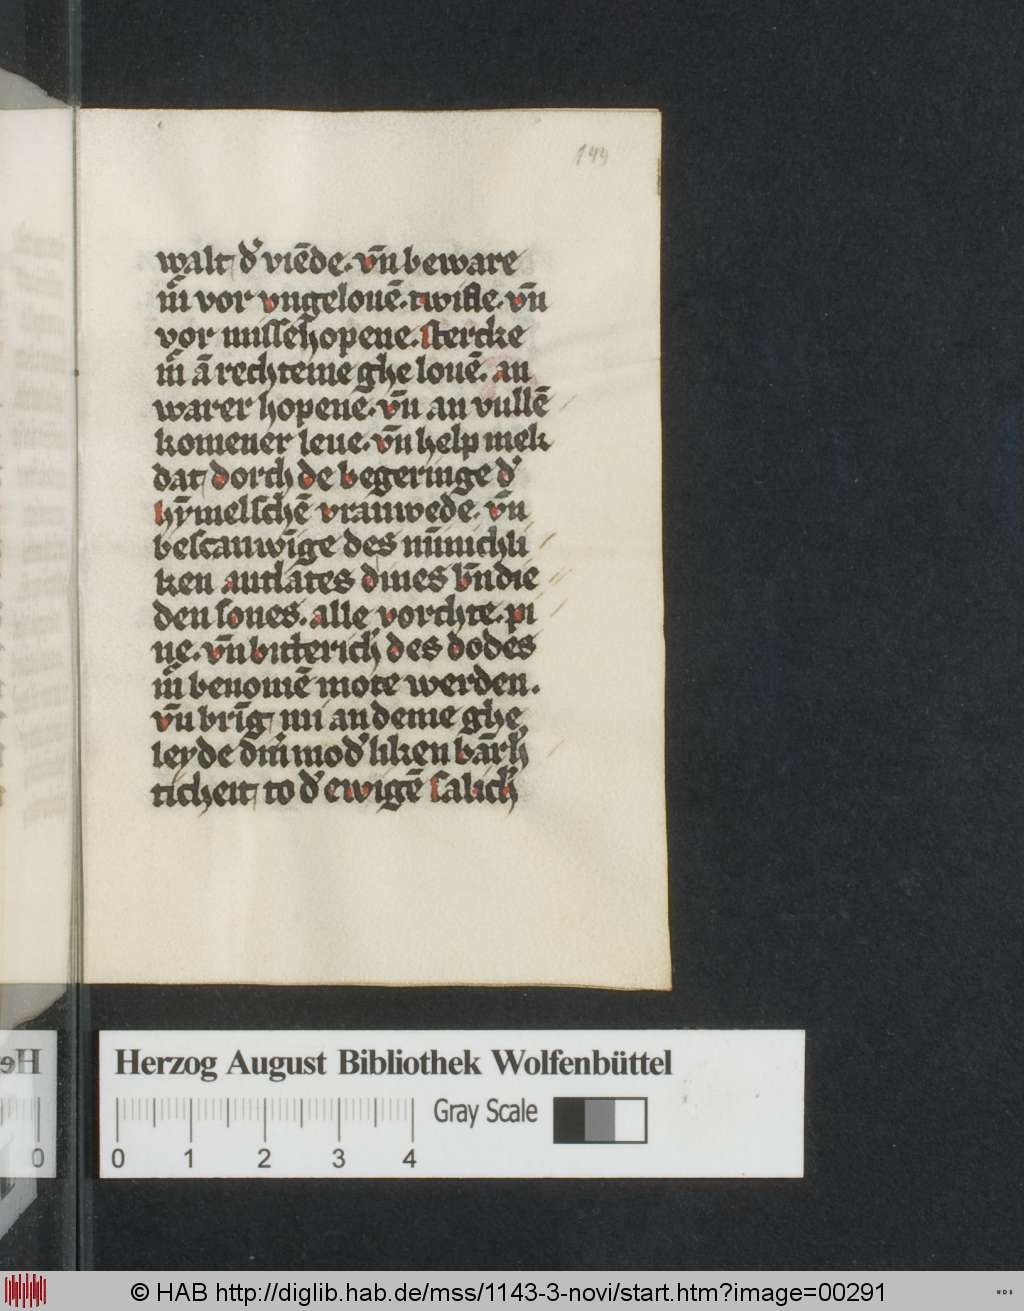 144
walt d᷑ viēde. vn̄ beware
mͥ vor vngelouē. twifle. vn̄
vor missehopene. stercke
mͥ ā rechteme ghe louē. an
warer hopenē. vn̄ an vullē
komener leue. vn̄ help mek
dat dorch de begeringe d᷑
hȳmelschē vrauwede. vn̄
bescauwīge des mīnichli
ken antlates dines bn̄die
den sones. alle vorchte. pi
ne. vn̄ bitterich᷑ des dodes
mͥ benomē mote werden.
vn̄ brīg mi an deme ghe
leyde dīn᷑ mod᷑liken bārh᷑
ticheit to d᷑ ewigē salich᷑
Herzog August Bibliothek Wolfenbüttel
Gray Scale
0 1 2 3 4
© HAB http://diglib.hab.de/mss/1143-3-novi/start.htm?image=00291